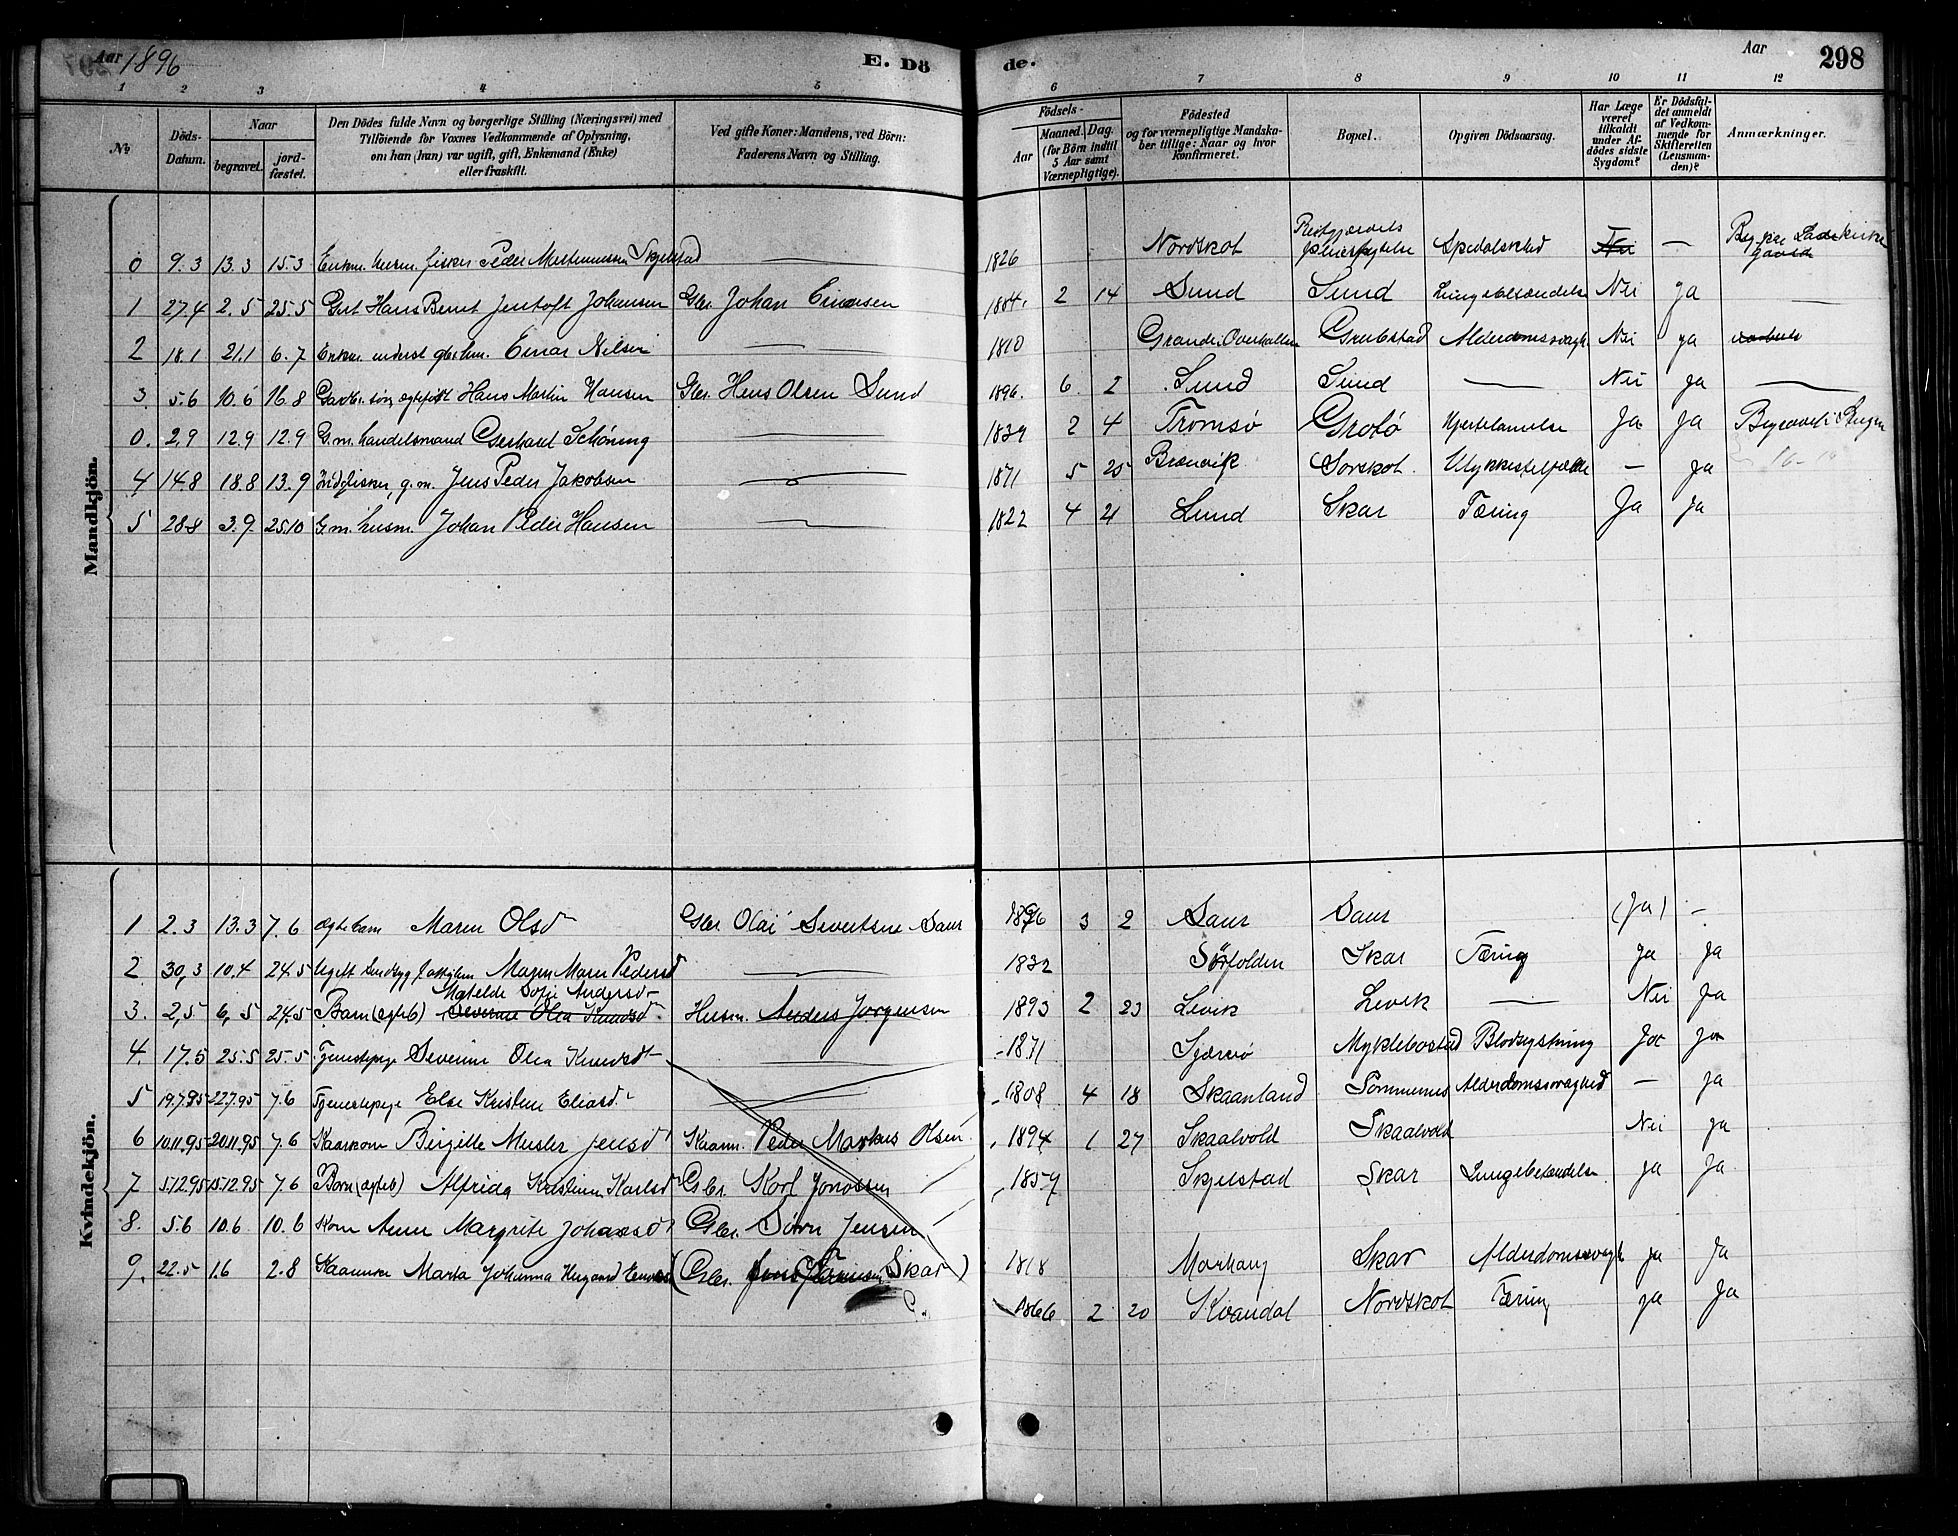 Aar 1896
E. Dö
de.
Aar
298
1 2 3 4 5 6 7 8 9 10 11 12
№
Döds-Datum.
Naar
begravet.
jord-fæstet.
Den Dödes fulde Navn og borgerlige Stilling (Næringsvei) med
Tilföiende for Voxnes Vedkommende af Oplysning,
om han (hun) var ugift, gift, Enkemand (Enke)
eller fraskilt.
Ved gifte Koner: Mandens, ved Börn:
Faderens Navn og Stilling.
Födsels-
Aar
Maaned. Dag.
(for Börn indtil
5 Aar samt
Værnepligtige).
Födested
og for værnepligtige Mandska-
ber tillige: Naar og hvor
konfirmeret.
Bopæl.
Opgiven Dödsaarsag.
Har Læge
været
tilkaldt
under Af-
dödes sidste
Sygdom?
Er Dödsfal-
det anmeldt
af Vedkom-
mende for
Skifteretten
(Lensman-
den)?
Anmærkninger.
Mandkjön.
0 9.3 13.3 15.3 Enkm. husm. fisker Peder Skjelstad 1826 Nordskot Spedalskhed Nei —
1 27.4 2.5 25.5 Gut Hans Bernt Jentoft Johansen Gbr. Johan Einarsen 1884. 2 14 Sund Sund Lungebetændelse Nei ja —
2 18.1 21.1 6.7 Enkm. Einar Nilsen — 1810 Grande i Overhallen Alderdomssvagh. Nei ja
3. 5.6 10.6 16.8 Gaardbr. søn Hans Martin Hansen Gbr. Hans Olsen Sund 1896. 6. 2 Sund Sund — Nei ja —
0. 2.9 12.9 12.9 G.m. handelsmand Gerhard Schöning — 1839 2 4 Tromsø Grøtø Hjertelamelse Ja Ja Begravet i Steigen
4 14.8 18.8 13.9 Inds. fisker, g.m. Jens Peder Jakobsen — 1871 5 25 Brænvik Sørskot. Ulykkestilfælde — ja
5 28.8 3.9. 25.10 G.m. husm. Johan Peder Hansen — 1822 4 21 Lund Skar Tæring Ja ja
Kvindekjön.
1 2.3 13.3 7.6 Ægtebarn Maren Olsd Gbr. Olai Sivertsen Saur 1896 3 2 Saur Saur (Ja) -
2 30.3 10.4 24.5 Ugift Maren Pedersd — 1832 Sørfolden Skar Tæring ja ja
Matelde Sofie Andersd
3. 2.5 6.5 24.5 Barn (ægteb) Severine Olea Knudsd Husm. Anders Jørgensen 1893 2 23 Levik Levik — Nei ja
4. 17.5 25.5 25.5 Tjenestepige Severine Olea Knudsdt — 1871 Myklebostad Blodstyrtning Ja ja
5 19.7.95 22.7.95 7.6 Tjenestepige Else Kristine Eliasd. 1808 4 18 Skaanland Sommernes Alderdomssvaghed — ja
6 10.11.95 20.11.95 7.6 Birgitte Jensd Kaarm. Peder Markus Olsen 1894 1 27 Skaalvold Skaalvold Nei ja
7 5.12.95 15.12.95 7.6 Barn (ægteb) Alfrida Kristine Karlsd Gbr. Karl Jonassen 1857 Skjelstad Skar Lungebetændelse ja ja
8. 5.6 10.6 10.6 Kone Anne Margrite Johansd Gbr. Søren Jensen
9. 22.5 1.6 2.8 Marta Johanna (Gbr. Skar) 1818 Skar Alderdomssvagh ja ja
1866 2 20 Kvandal Nordskot Tæring ja ja